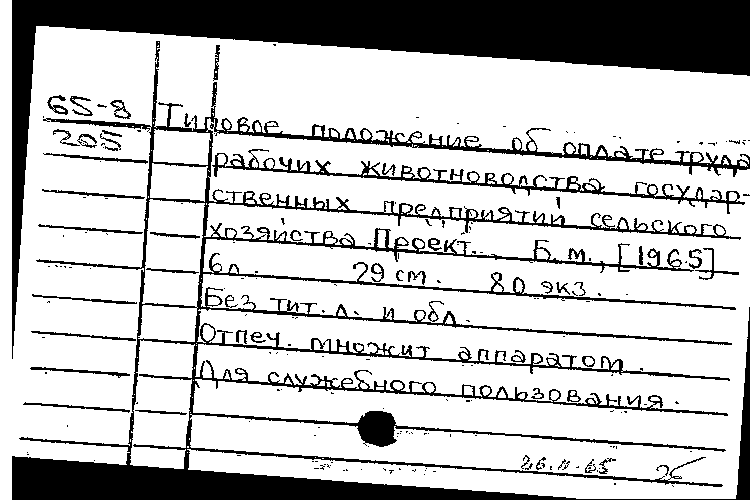 65-8
205
Типовое положение об оплате труда
рабочих животноводства государ-
ственных предприятий сельского
хозяйства Проект. , Б.м., [1965]
6л. 29 см. 80 экз.
Без тит. л. и обл.
Отпеч. множит аппаратом.
Для служебного пользования.